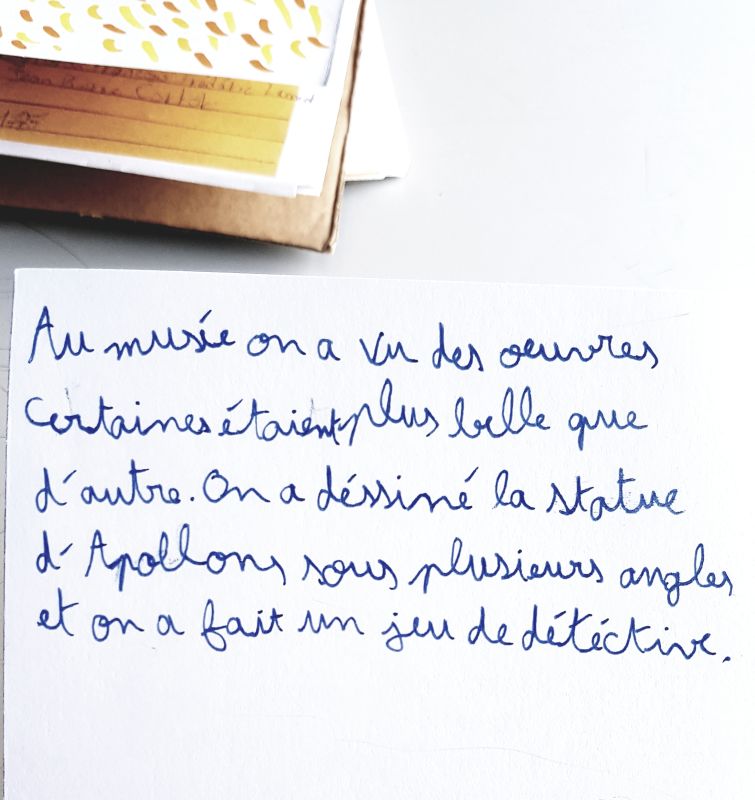 Jean Pierre Cortot
Au musée on a vu des oeuvres
Certaines étaient plus belle que
d'autre. On a déssiné la statue
d'Apollons sous plusieurs angles
et on a fait un jeu de détéctive.